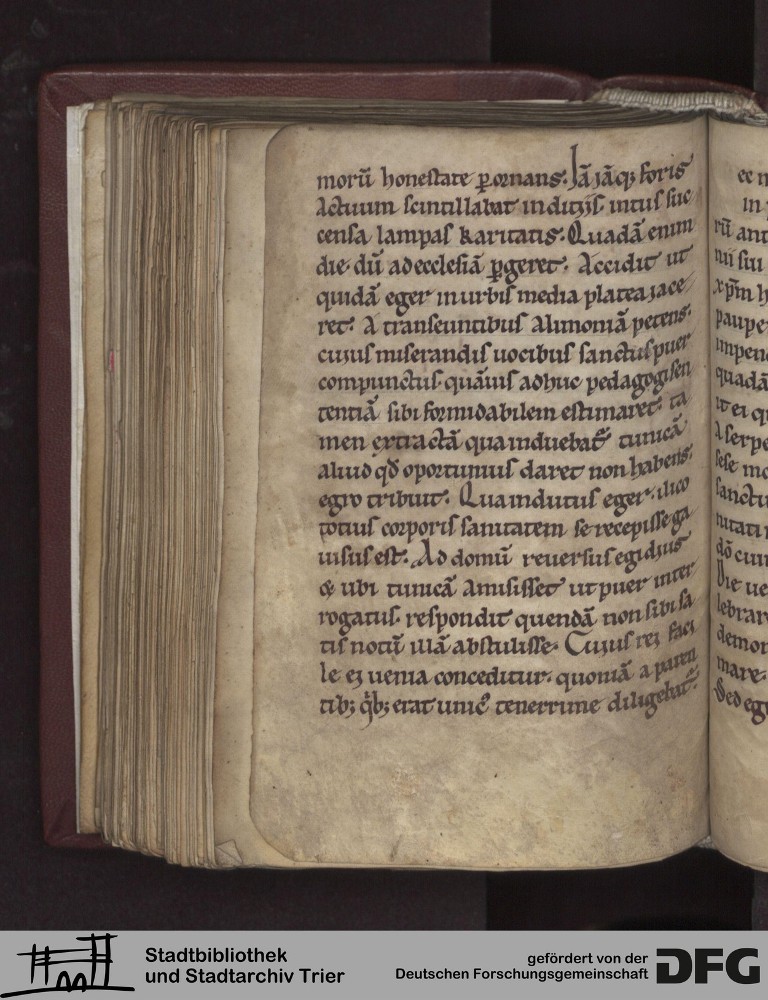 morū honestate ꝑornans. Iā iāq; foris
actuum scintillabat indiciis. intus suc
censa lampas karitatis. Quadā enim
die. dū ad ecclesiā ꝑgeret. Accidit ut
quidā eger in urbis media platea iace
ret. A transeuntibus alimoniā petens.
cuius miserandis uocibus sanctus puer
compunctus. quāuis adhuc pedagogi sen
tentiā sibi formidabilem estimaret. ta
men extractā qua induebat̄ tunicā
aliud qđ oportunius daret non habens.
egro tribuit. Qua indutus eger. ilico
totius corporis sanitatem se recepisse ga
uisus est. Ad domū reuersus egidius
& ubi tunicā amisisset ut puer inter
rogatus. respondit quendā non sibi sa
tis notū illā abstulisse. Cuius rei faci
le ei uenia conceditur. quoniā a paren
tib; q̇b; erat unic᷒ tenerrime diligebat̄.
ru̅ ant
paupe
impen
quadā
a serpe
sese mo
sanctu
Die ue
lebrar
demon
mare.
Sed eg
Stadtbibliothek
und Stadtarchiv Trier
gefördert von der
Deutschen Forschungsgemeinschaft
DFG